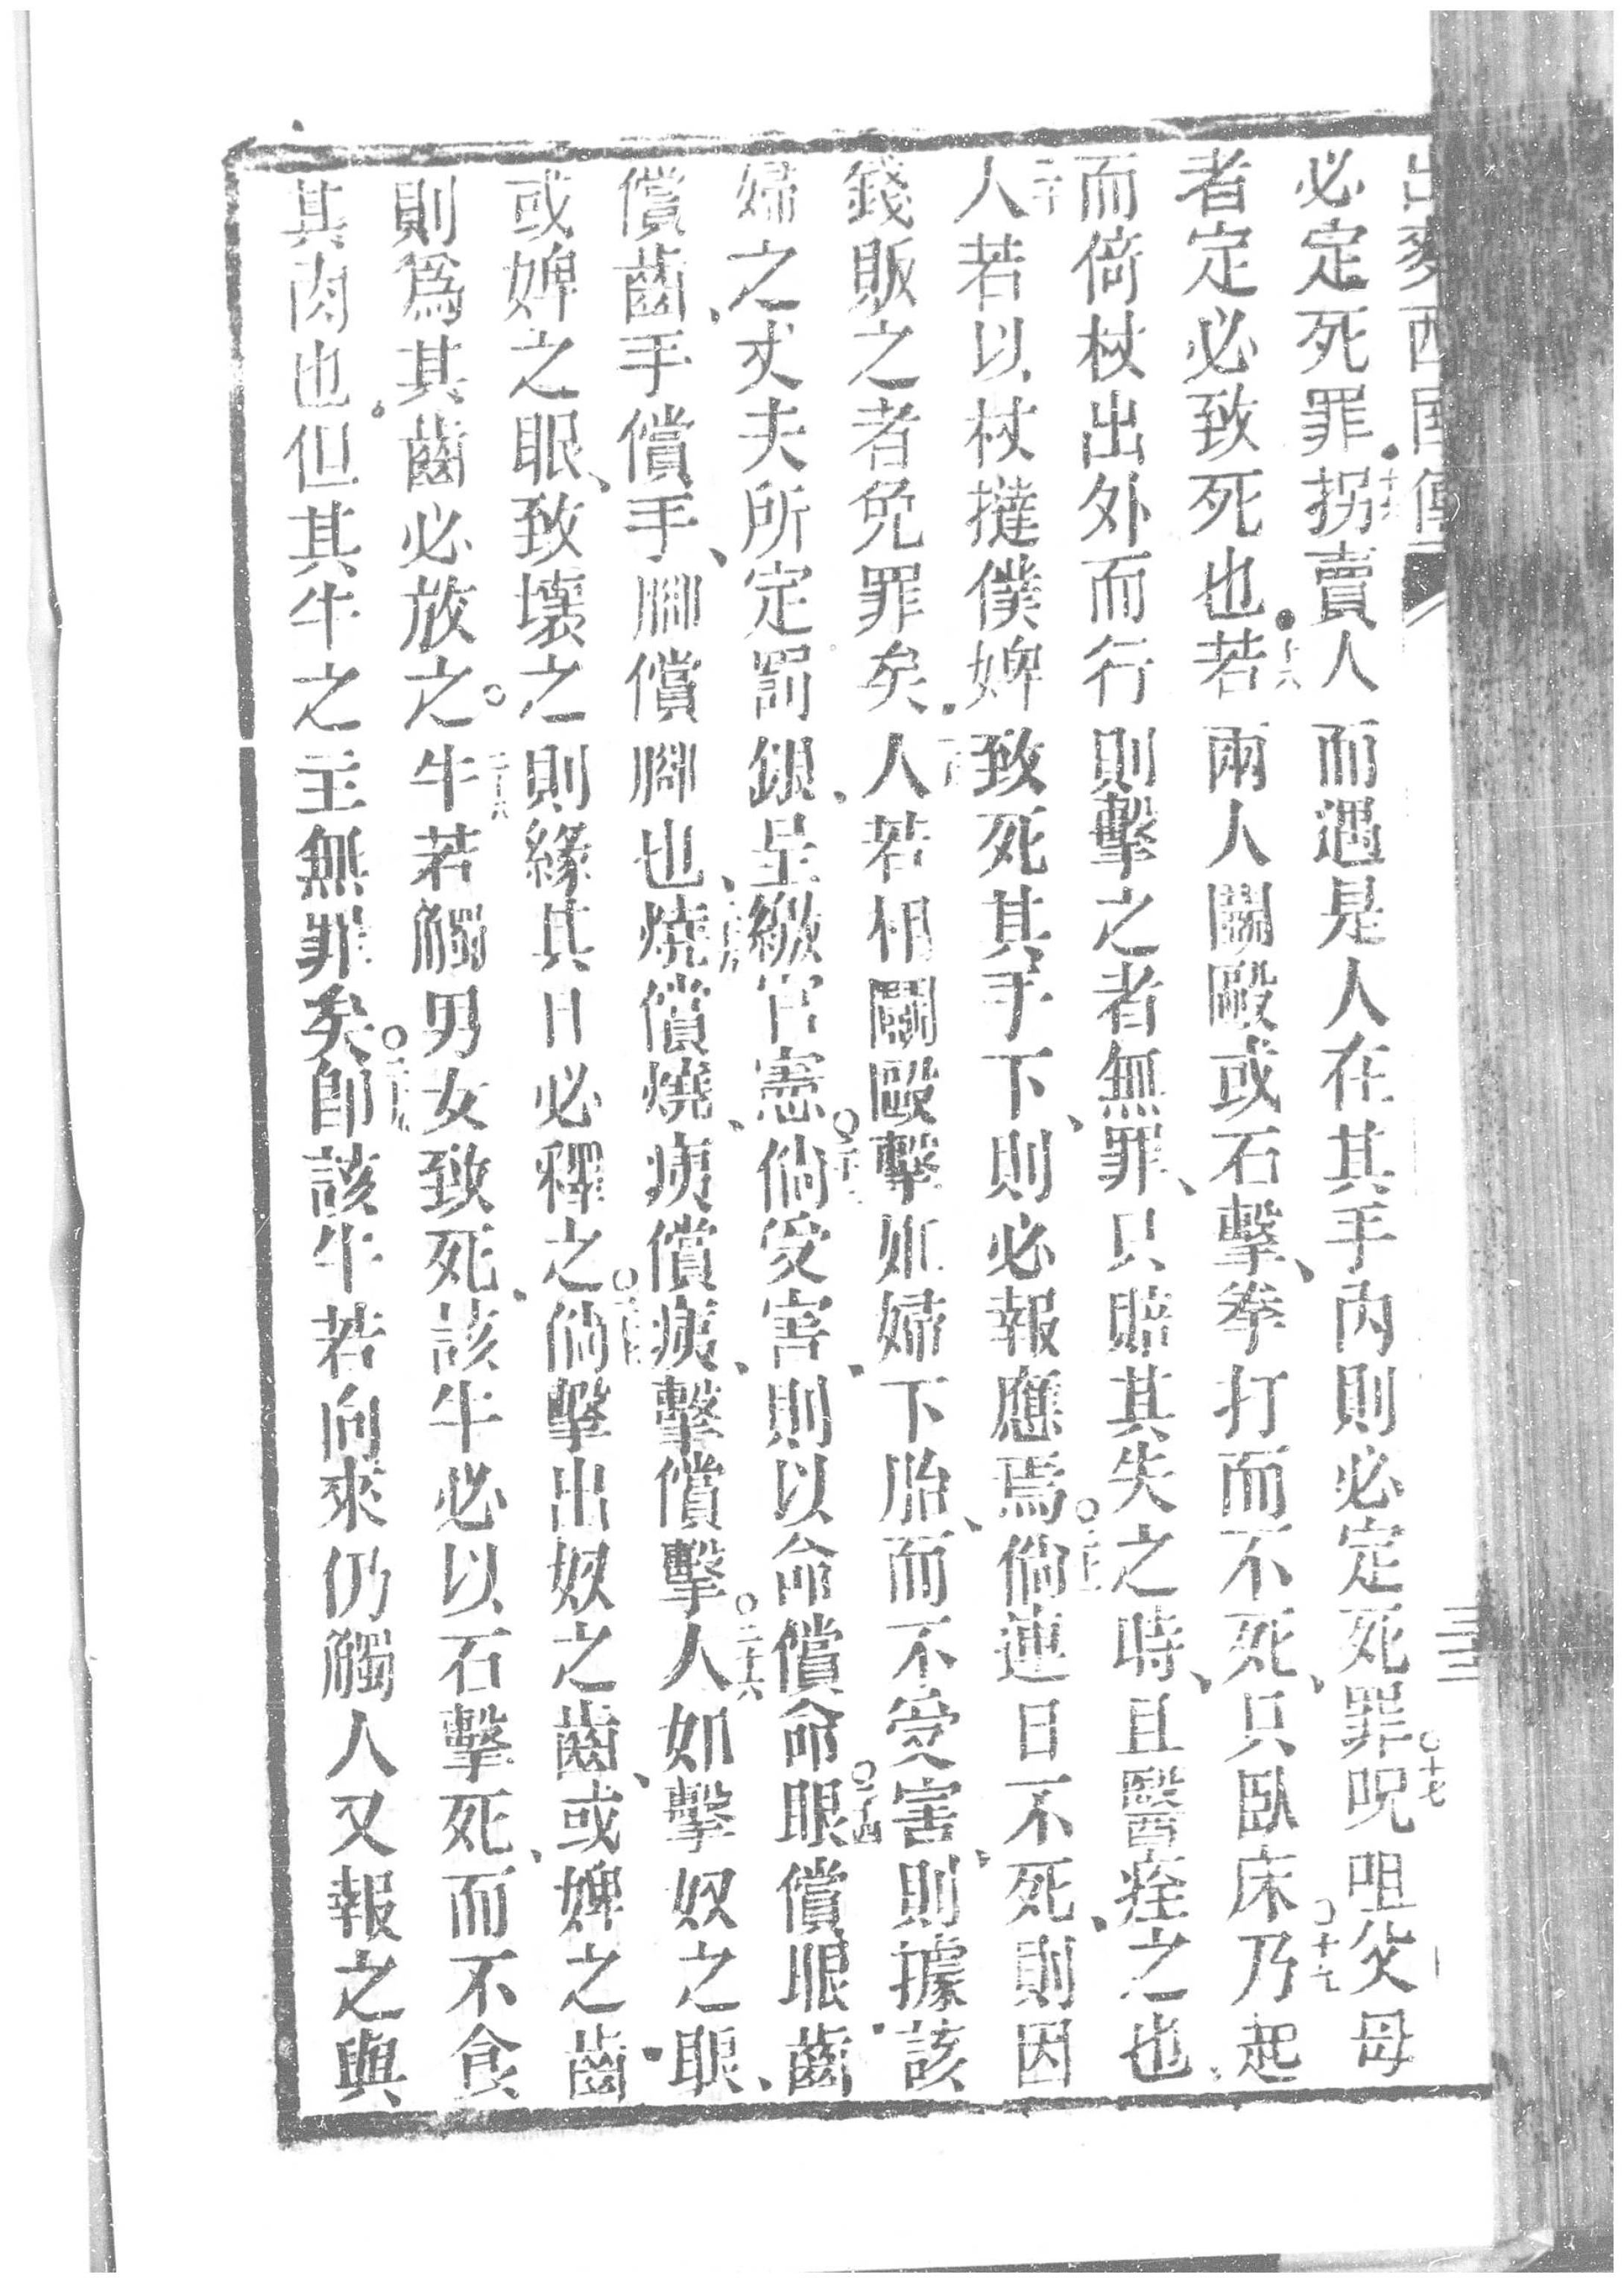 出麥西國傳
三十二
必定死罪○十六拐賣人而遇是人在其手內則必定死罪○十七呪咀父母
者定必致死也○十八若兩人鬬毆或石擊、拳打而不死、只臥床○十九乃起
而倚杖出外而行則擊之者無罪、只賠其失之時、且醫痊之也、
二十人若以杖撻僕婢致死其手下、則必報應焉○二十一倘連日不死、則因
錢販之者免罪矣○二十二人若相鬬毆擊如婦下胎、而不受害、則據該
婦之丈夫所定罰銀、呈繳官憲○二十三倘受害、則以命償命○二十四眼償眼、齒
償齒、手償手、腳償腳也、二十五燒償燒、痍償痍、擊償擊○二十六人如擊奴之眼、
或婢之眼、致壞之則緣其目必釋之○二十七倘擊出奴之齒、或婢之齒、
則爲其齒必放之○二十八牛若觸男女致死、該牛必以石擊死、而不食
其肉也。但其牛之主無罪矣○二十九卽該牛若向來仍觸人又報之與